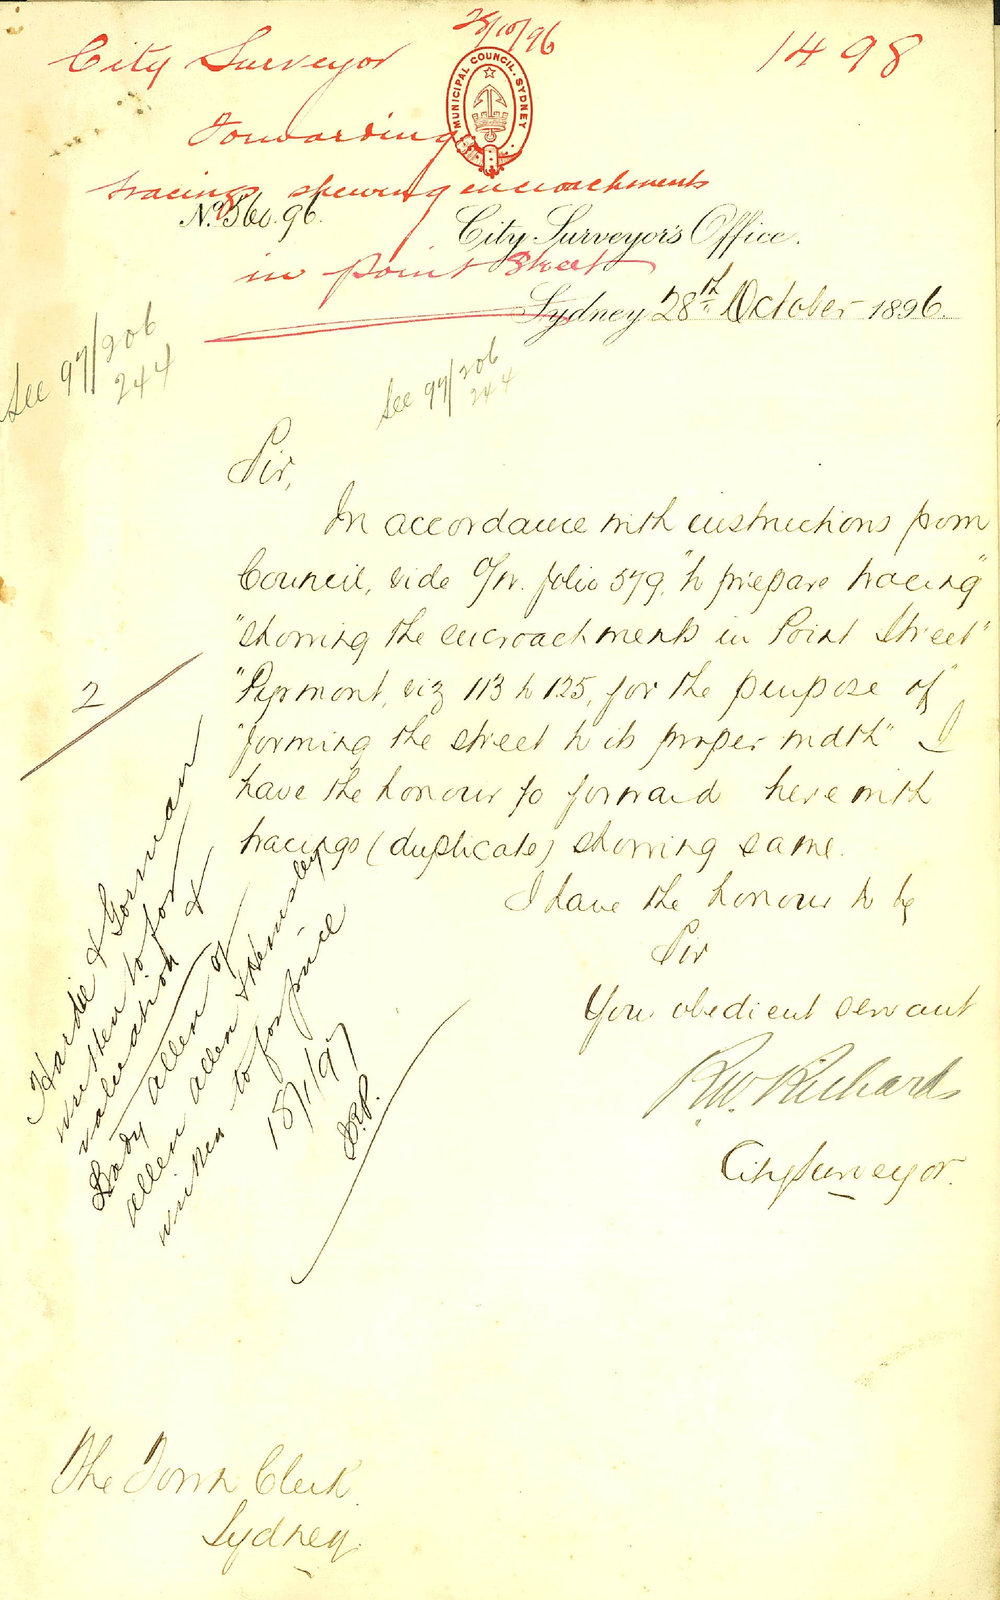 28/10/96
City Surveyor
1498
MUNICIPAL COUNCIL. SYDNEY
Forwarding
tracings shewing encroachments
No. 560.96.
City Surveyor's Office.
in Point Street
Sydney 28th October 1896.
See 97/206
244
See 97/206
244
Sir,
In accordance with instructions from
Council, vide folio 579, "to prepare tracing"
"showing the encroachments in Point Street"
"Pyrmont, viz 113 to 125, for the purpose of"
"forming the street to its proper width" I
have the honour to forward herewith
tracings (duplicate) showing same.
I have the honour to be
Sir
Your obedient servant
R.W. Richards
City Surveyor.
2
Hardie & Gorman
written to for
valuation &
Body Allen of
Allen Allen & Hemsley
written to for price
18/1/97
The Town Clerk
Sydney.